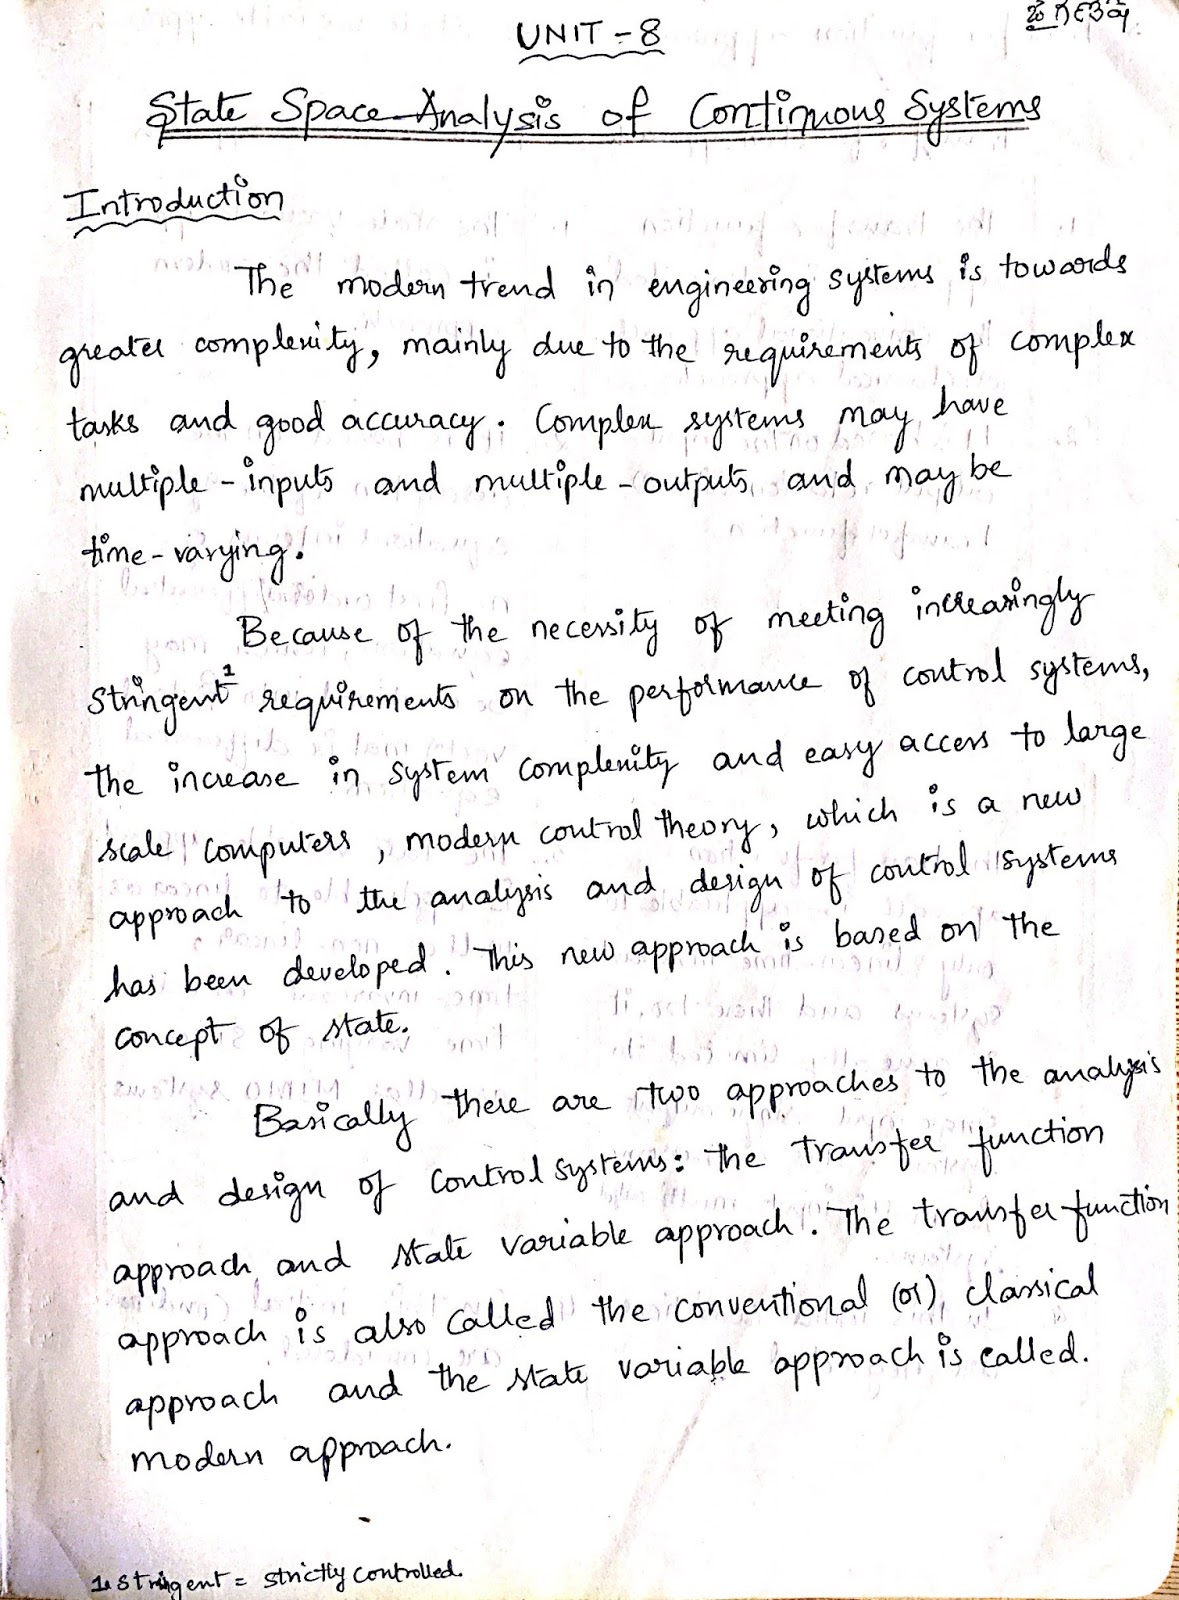 UNIT-8
State Space Analysis of Continuous Systems
Introduction
The modern trend in engineering systems is towards
greater complexity, mainly due to the requirements of complex
tasks and good accuracy. Complex systems may have
multiple-inputs and multiple-outputs and may be
time-varying.
Because of the necessity of meeting increasingly
stringent¹ requirements on the performance of control systems,
the increase in system complexity and easy access to large
scale computers, modern control theory, which is a new
approach to the analysis and design of control systems
has been developed. This new approach is based on the
concept of state.
Basically there are two approaches to the analysis
and design of control systems: the transfer function
approach and state variable approach. The transfer function
approach is also called the conventional (or) classical
approach and the state variable approach is called.
modern approach.
1. Stringent = strictly controlled.